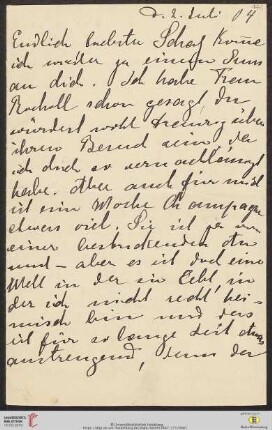 d. 2. Juli 04
Endlich liebster Schatz komme
ich wieder zu einem Gruss
an dich. Ich habe Frau
schon gesagt, du
würdest wohl traurig über
ihren Besuch sein, da
ich dich so vernachlässigt
habe. Aber auch für mich
ist eine Woche Champagne
etwas viel. Sie ist ja von
einer bestrickenden Art
und – aber es ist doch eine
Welt in der sie lebt, in
der ich nicht recht hei-
misch bin und das
ist für so lange Zeit etwas
anstrengend, denn der
UNIVERSITÄTS-
BIBLIOTHEK
HEIDELBERG
© Universitätsbibliothek Heidelberg